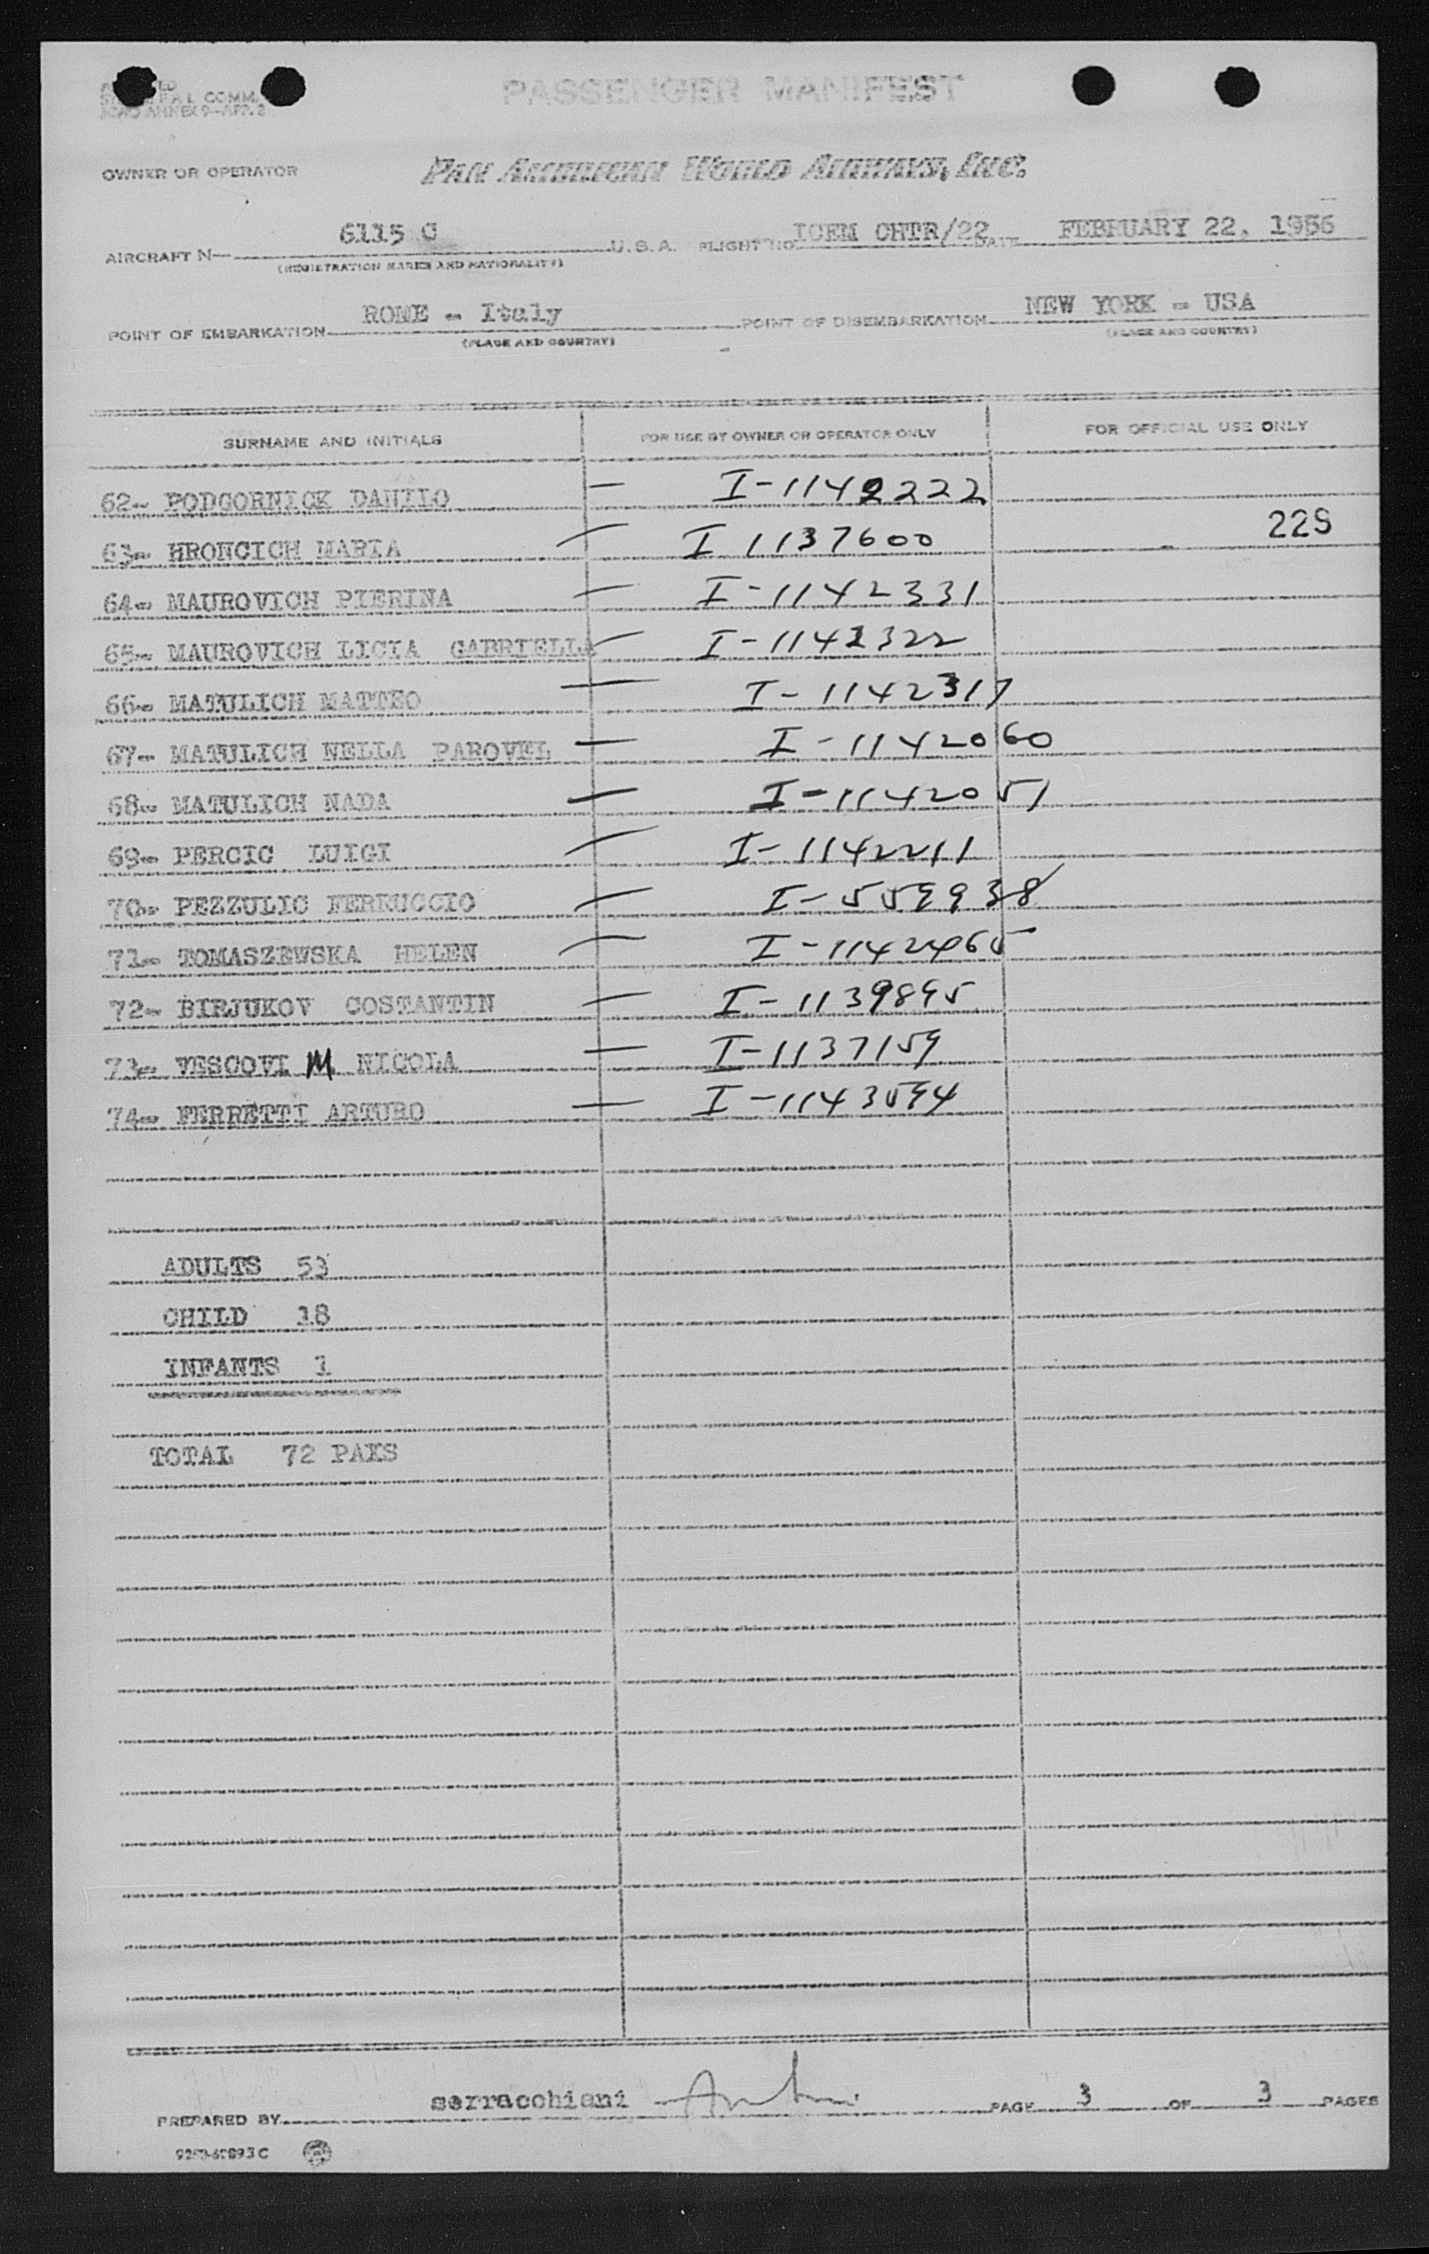 PASSENGER MANIFEST
OWNER OR OPERATOR PAN AMERICAN WORLD AIRWAYS, INC.
AIRCRAFT N— 6115 C U.S.A. FLIGHT NO. ICEM CHTR/22 DATE FEBRUARY 22, 1956
(REGISTRATION MARKS AND NATIONALITY)
POINT OF EMBARKATION ROME - Italy POINT OF DISEMBARKATION NEW YORK - USA
(PLACE AND COUNTRY) (PLACE AND COUNTRY)
SURNAME AND INITIALS FOR USE BY OWNER OR OPERATOR ONLY FOR OFFICIAL USE ONLY
62- PODGORNICK DANILO — I-1142222
63- HRONCICH MARIA — I 1137600 22S
64- MAUROVICH PIERINA — I-1142331
65- MAUROVICH LICIA GABRIELLA — I-1142322
66- MATULICH MATTEO — I-1142317
67- MATULICH NELLA PAROVEL — I-1142060
68- MATULICH NADA — I-1142051
69- PERCIC LUIGI — I-1142211
70- PEZZULIC FERRUCCIO — I-559938
71- TOMASZEWSKA HELEN — I-1142465
72- BIRJUKOV COSTANTIN — I-1139895
73- VESCOVI M NICOLA — I-1137159
74- FERRETTI ARTURO — I-1143594
ADULTS 53
CHILD 18
INFANTS 1
TOTAL 72 PAXS
PREPARED BY serracchiani PAGE 3 OF 3 PAGES